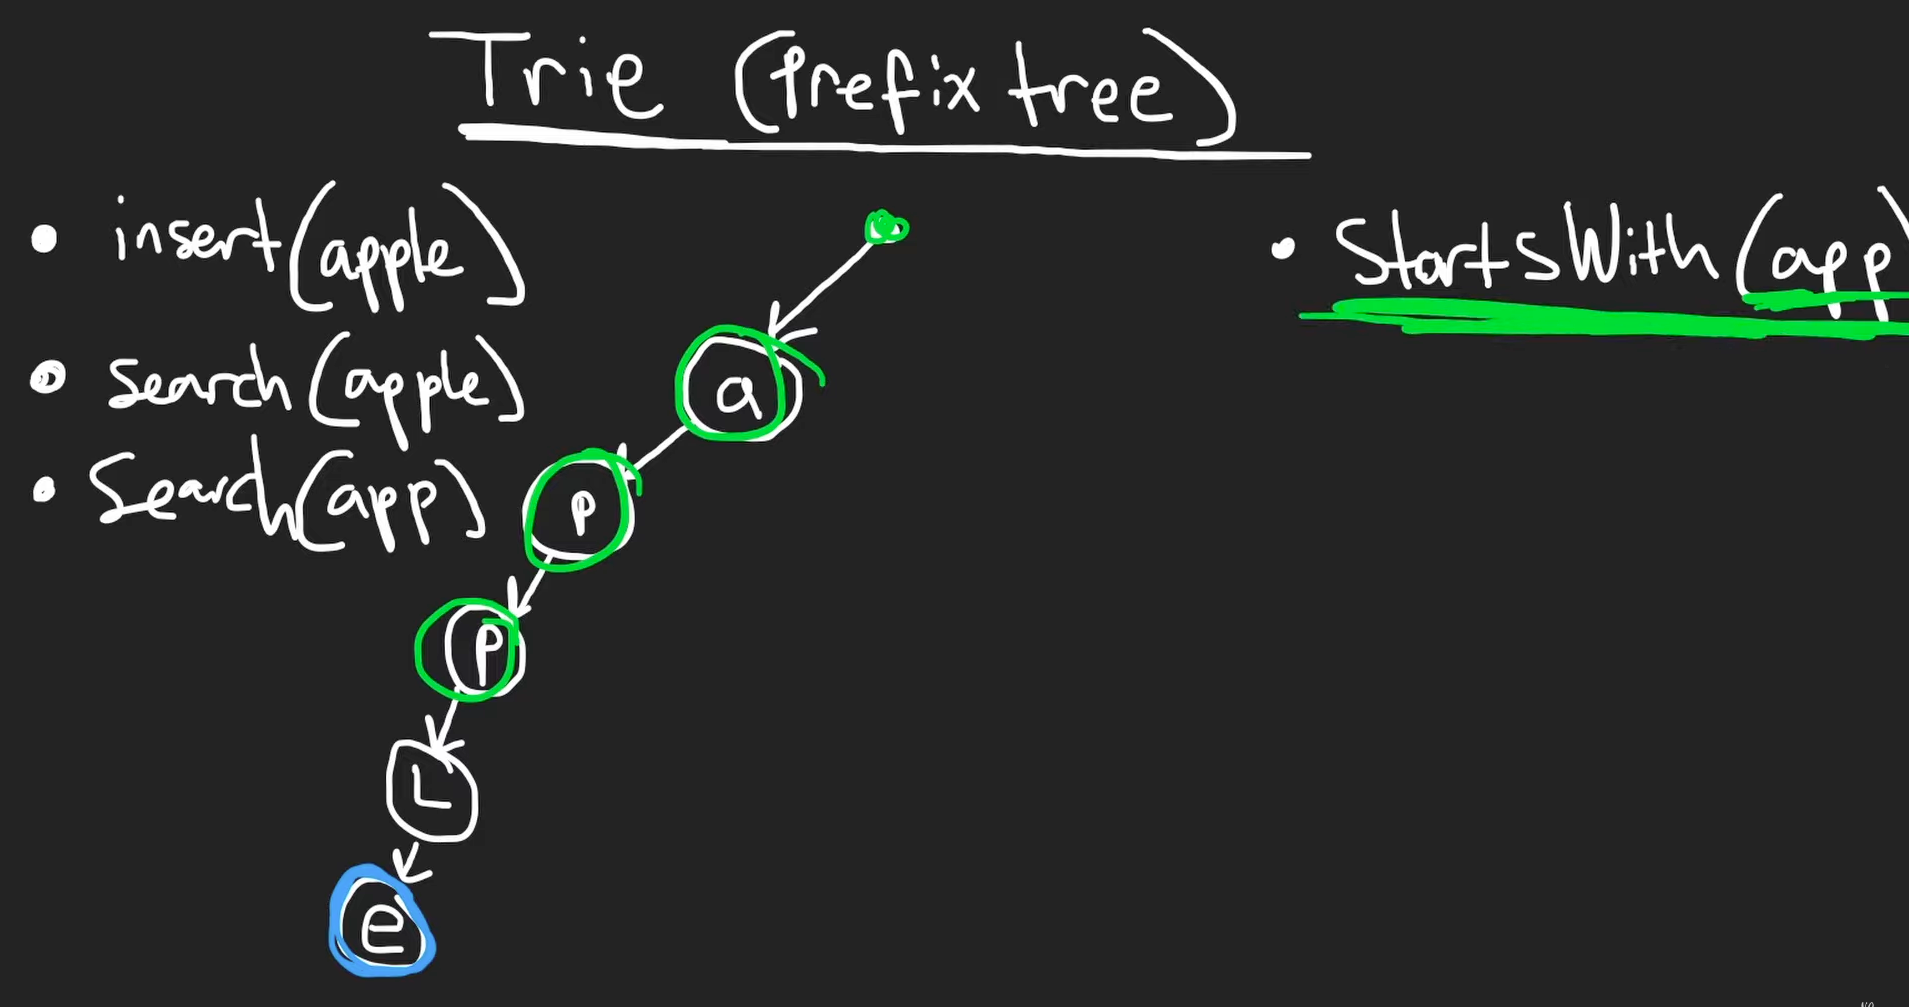 Trie (Prefix tree)
• insert(apple)
• search(apple)
• Search(app)
• StartsWith(app)
a
p
p
L
e